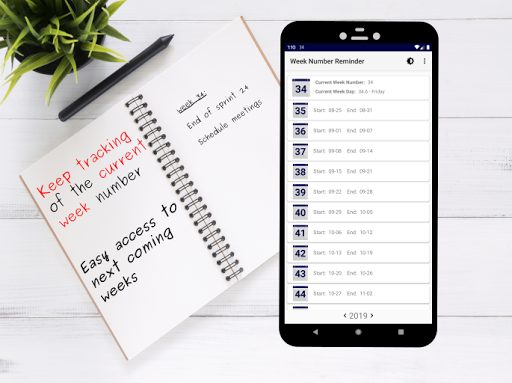 Keep tracking
of the current
week number
Easy access to
next coming
weeks
week 34:
End of sprint 24
schedule meetings
1:10 34
Week Number Reminder
34
Current Week Number: 34
Current Week Day: 34.5 - Friday
35 Start: 08-25 End: 08-31
36 Start: 09-01 End: 09-07
37 Start: 09-08 End: 09-14
38 Start: 09-15 End: 09-21
39 Start: 09-22 End: 09-28
40 Start: 09-29 End: 10-05
41 Start: 10-06 End: 10-12
42 Start: 10-13 End: 10-19
43 Start: 10-20 End: 10-26
44 Start: 10-27 End: 11-02
< 2019 >